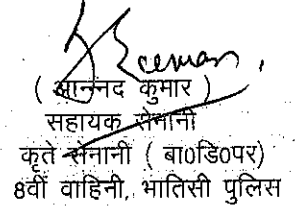 ( आनन्द कुमार )
सहायक सेनानी
कृते सेनानी ( बा0डि0पर)
8वीं वाहिनी, भातिसी पुलिस